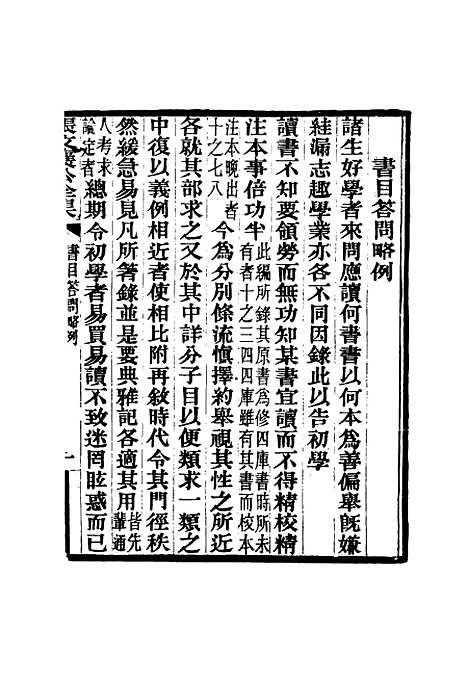 書目答問略例
諸生好學者來問應讀何書書以何本爲善偏舉旣嫌
絓漏志趣學業亦各不同因錄此以告初學
讀書不知要領勞而無功知某書宜讀而不得精校精
注本事倍功半此編所錄其原書爲修四庫書時所未
有者十之三四四庫雖有其書而校本
注本晚出者
十之七八今爲分別條流愼擇約舉視其性之所近
各就其部求之又於其中詳分子目以便類求一類之
中復以義例相近者使相比附再敘時代令其門徑秩
然緩急易見凡所著錄並是要典雅記各適其用皆先
輩通
人考求
論定者總期令初學者易買易讀不致迷罔眩惑而已
張文襄公全集
書目答問略例
一